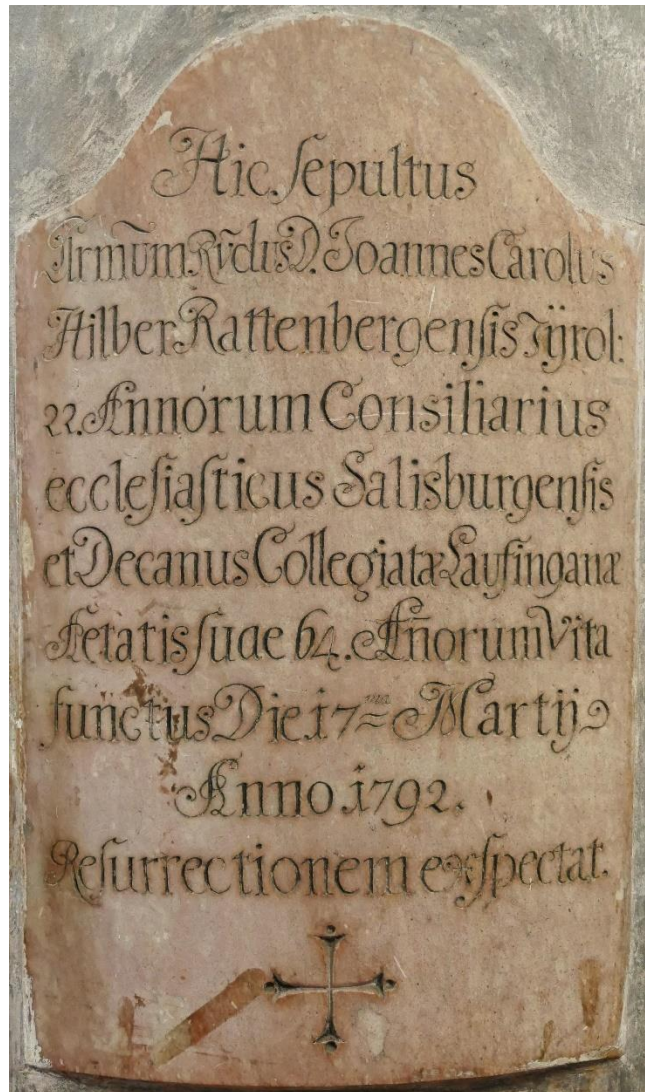 Hic ſepultus
Armũm Rv̄dus D. Joannes Carolus
Hilber Rattenbergenſis Tÿrol:
22. Annorum Consiliarius
eccleſiaſticus Salisburgenſis
et Decanus Collegiatæ Laufinganæ
Aetatis ſuae 64. An̄orum Vita
functus Die 17ma Martij
Anno 1792.
Reſurrectionem exſpectat.